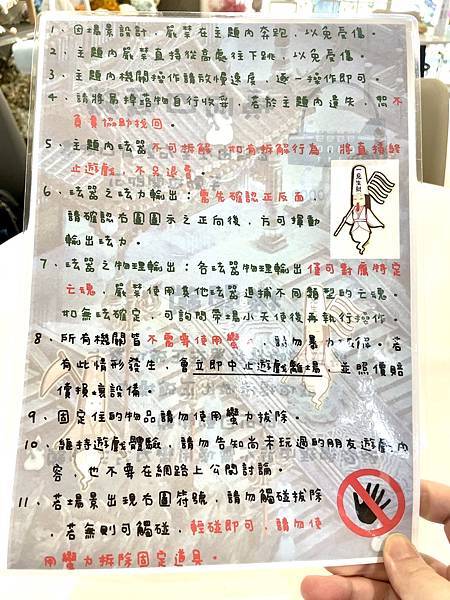 1、因場景設計，嚴禁在主題內奔跑，以免受傷。
2、主題內嚴禁直接從高處往下跳，以免受傷。
3、主題內機關操作請放慢速度，逐一操作即可。
4、請將易掉落物自行收妥，若於主題內遺失，恕不
負責協助找回。
5、主題內法器不可拆解，如有拆解行為，將直接終
止遊戲，不另退費。
6、法器之法力輸出：需先確認正反面，
請確認右圖圖示之正向後，方可揮動
輸出法力。
一見生財
7、法器之物理輸出：各法器物理輸出僅可對應特定
亡魂，嚴禁使用其他法器追捕不同類型的亡魂。
如無法確定，可詢問帶場小天使後再執行操作。
8、所有機關皆不需要使用蠻力，請勿暴力破壞。若
有此情形發生，會立即中止遊戲離場，並照價賠
償損壞設備。
9、固定住的物品請勿使用蠻力拔除。
10、維持遊戲體驗，請勿告知尚未玩過的朋友遊戲內
容，也不要在網路上公開討論。
11、若場景出現右圖符號，請勿觸碰拔除
，若無則可觸碰，輕碰即可，請勿使
用蠻力拆除固定道具。